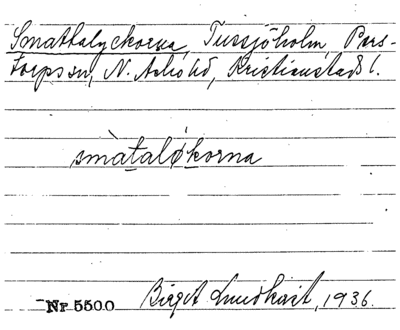 Smathalyckorna, Tussjöholm, Pers-
torps sn, N. Åsbo hd, Kristianstads l.
smàtaløkorna
Nr 5500 Birgit Lundkvist, 1936.